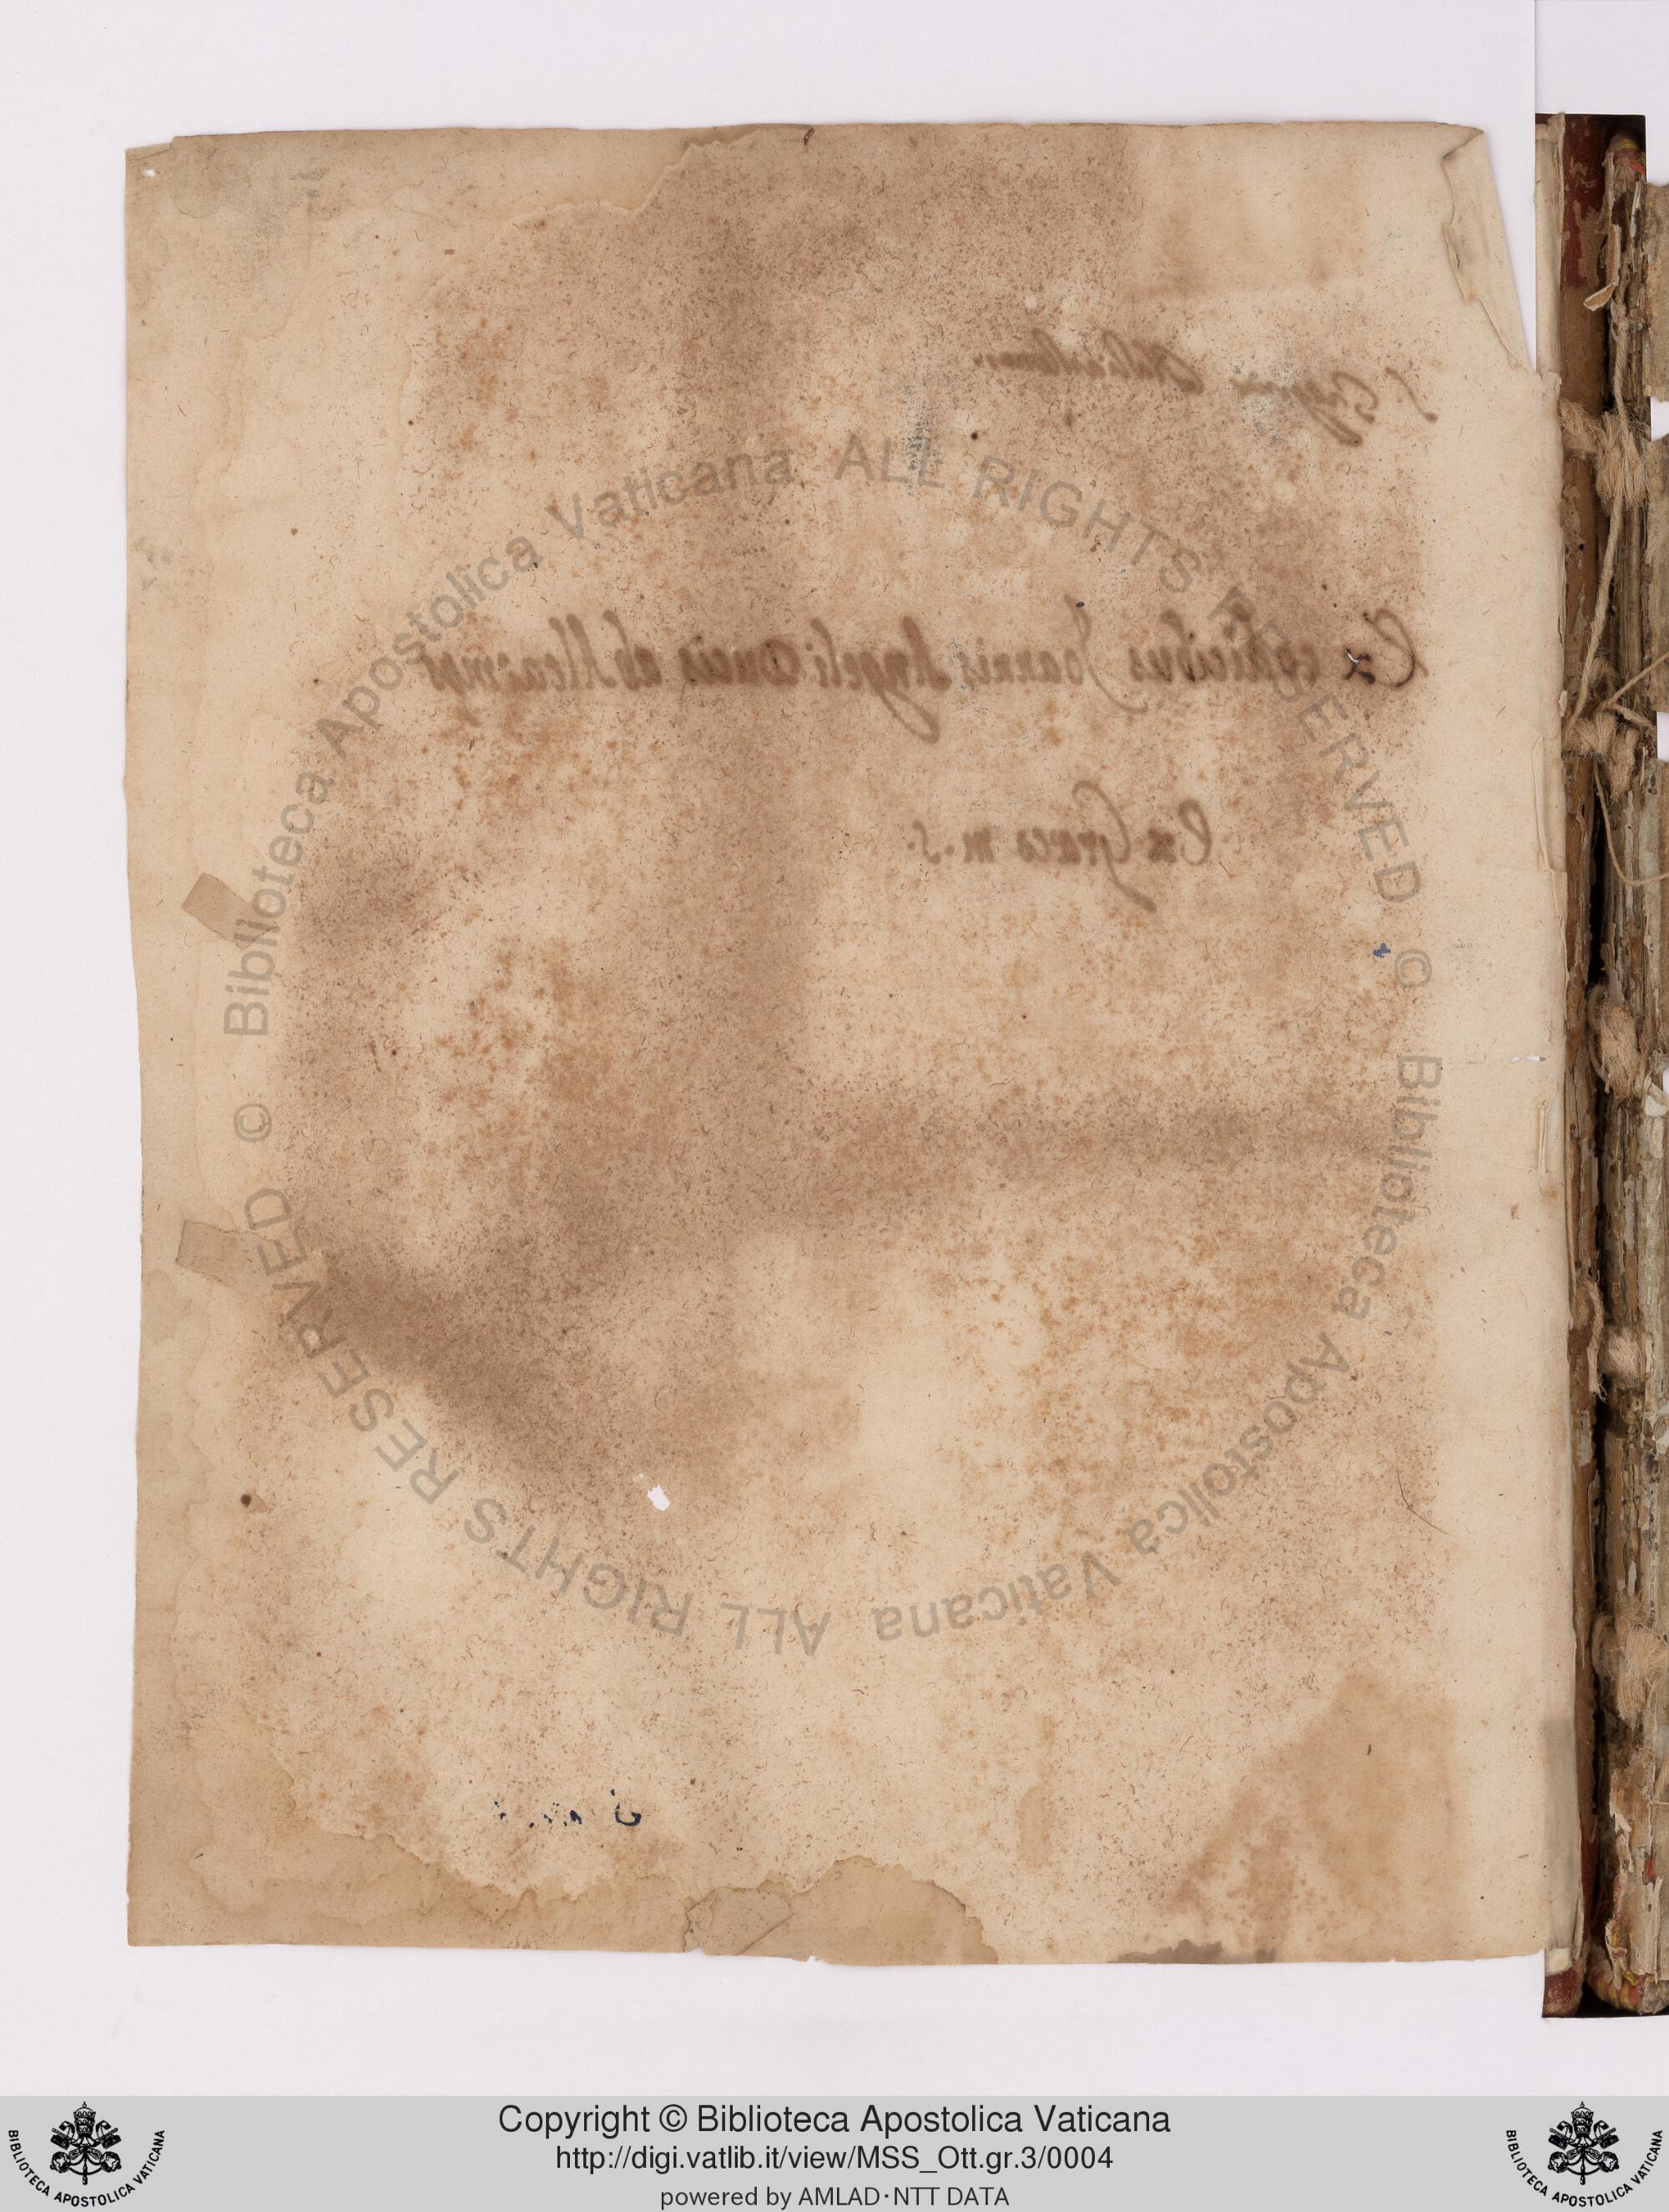 Ex codicibus Joannis Angeli Ducis ab Altaemps
Ex Graeco m. s.
© Biblioteca Apostolica Vaticana ALL RIGHTS RESERVED © Biblioteca Apostolica Vaticana ALL RIGHTS RESERVED
Copyright © Biblioteca Apostolica Vaticana
http://digi.vatlib.it/view/MSS_Ott.gr.3/0004
powered by AMLAD·NTT DATA
BIBLIOTECA APOSTOLICA VATICANA
BIBLIOTECA APOSTOLICA VATICANA